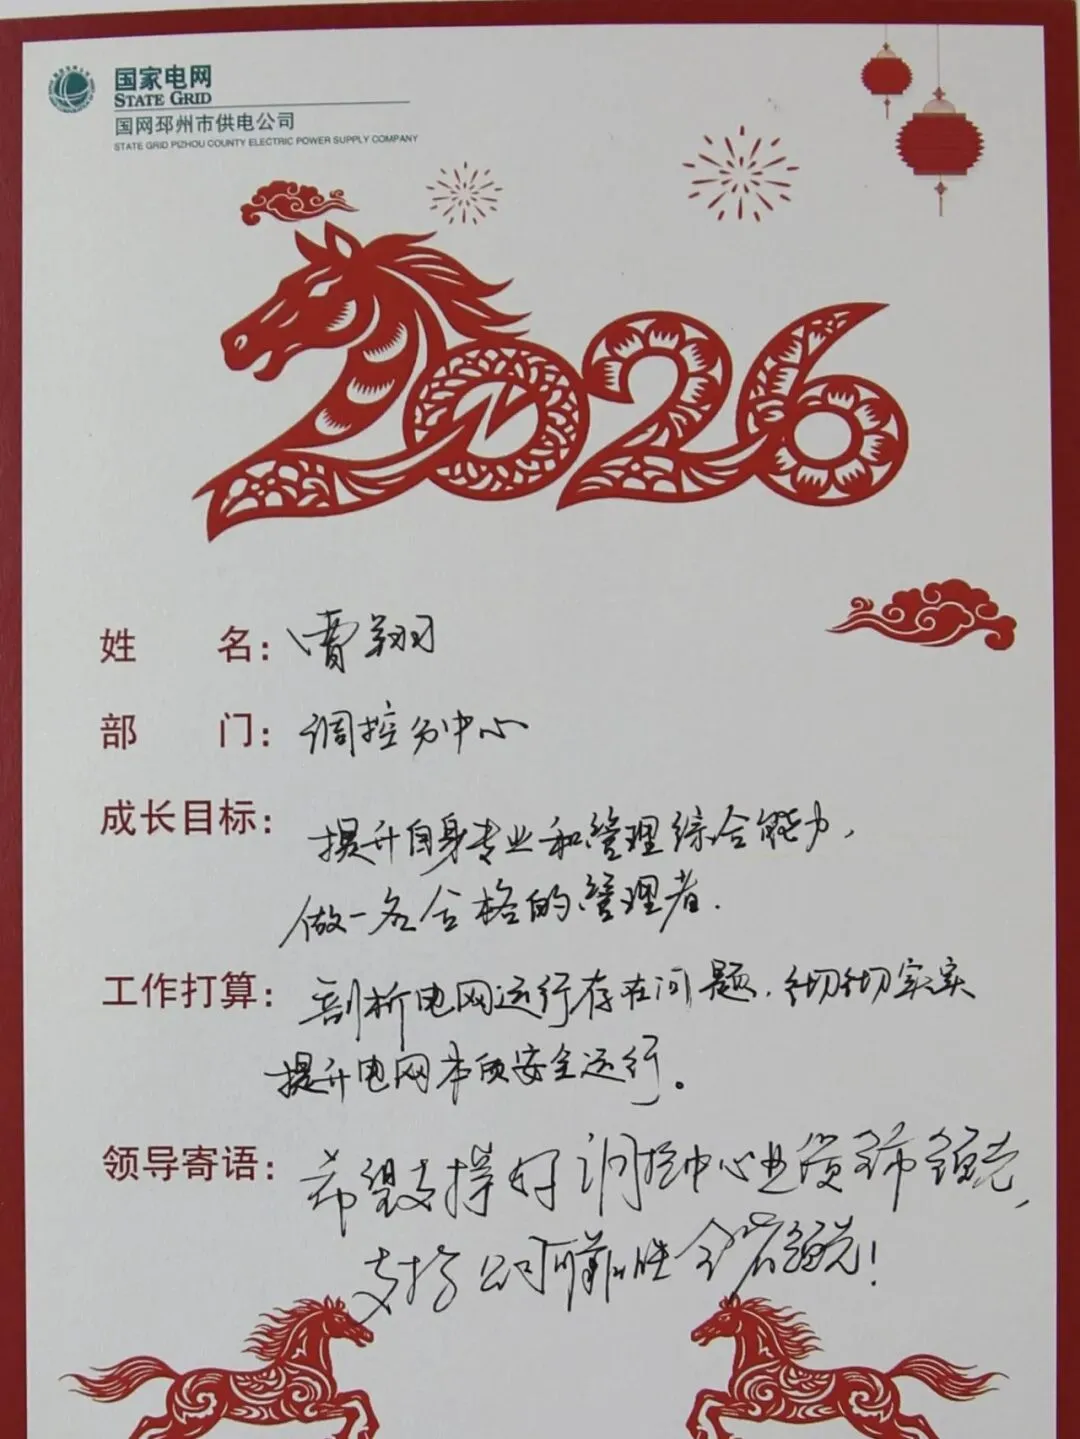 国家电网
STATE GRID
国网邳州市供电公司
STATE GRID PIZHOU COUNTY ELECTRIC POWER SUPPLY COMPANY
2026
姓 名：曹翔
部 门：调控分中心
成长目标：提升自身专业和管理综合能力，
做一名合格的管理者．
工作打算：剖析电网运行存在问题．切切实实
提升电网本质安全运行。
领导寄语：希望支撑好调控中心业资全市领先，
支撑公司可靠性全省领先！